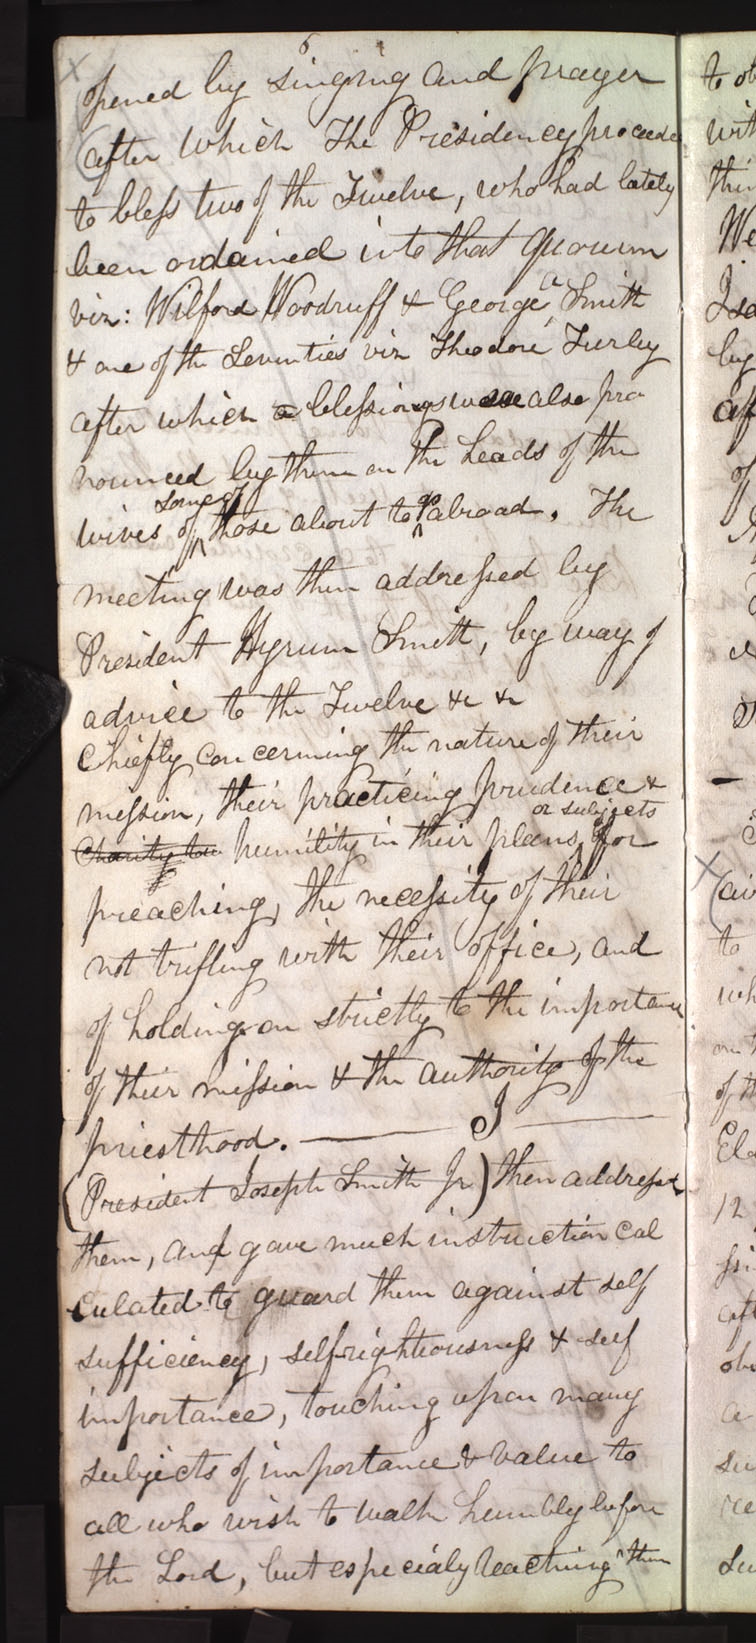 6
opened by singing and prayer
(after which The Presidency proceeded
to bless two of the Twelve, who had lately
been ordained into that quorum
viz: Wilford Woodruff & George A Smith
& one of the Seventies viz Theodore Turley
after which a blessings were also pro
nounced by them on the heads of the
some of
wives of those about to go abroad. The
meeting was then addressed by
President Hyrum Smith, by way of
advice to the Twelve &c &c
Chiefly concerning the nature of their
mission, their practicing prudence &
or subjects
humility in their plans for
preaching, the necessity of their
not trifling with their office, and
of holding on strictly to the importance
of their mission & the authority of the
priesthood. — I —
(President Joseph Smith Jr) then addressed
them, and gave much instruction cal
culated to guard them against self
sufficiency, selfrightiousness & self
importance, touching upon many
subjects of importance & value to
all who wish to walk humbly before
the Lord, but especialy teaching them